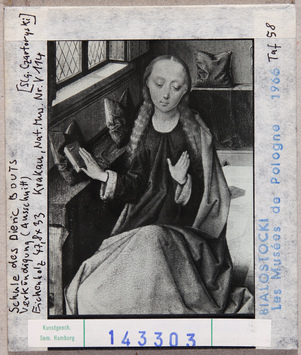 [Slg. Czartoryski]
Schule des Dieric BOUTS
Verkündigung (Ausschnitt)
Eichenholz 47,8x33 Krakau, Nat. Mus. Nr. V 114
BIAŁOSTOCKI
Les Musées de Pologne 1966 Taf 58
Kunstgesch.
Sem. Hamburg
143303